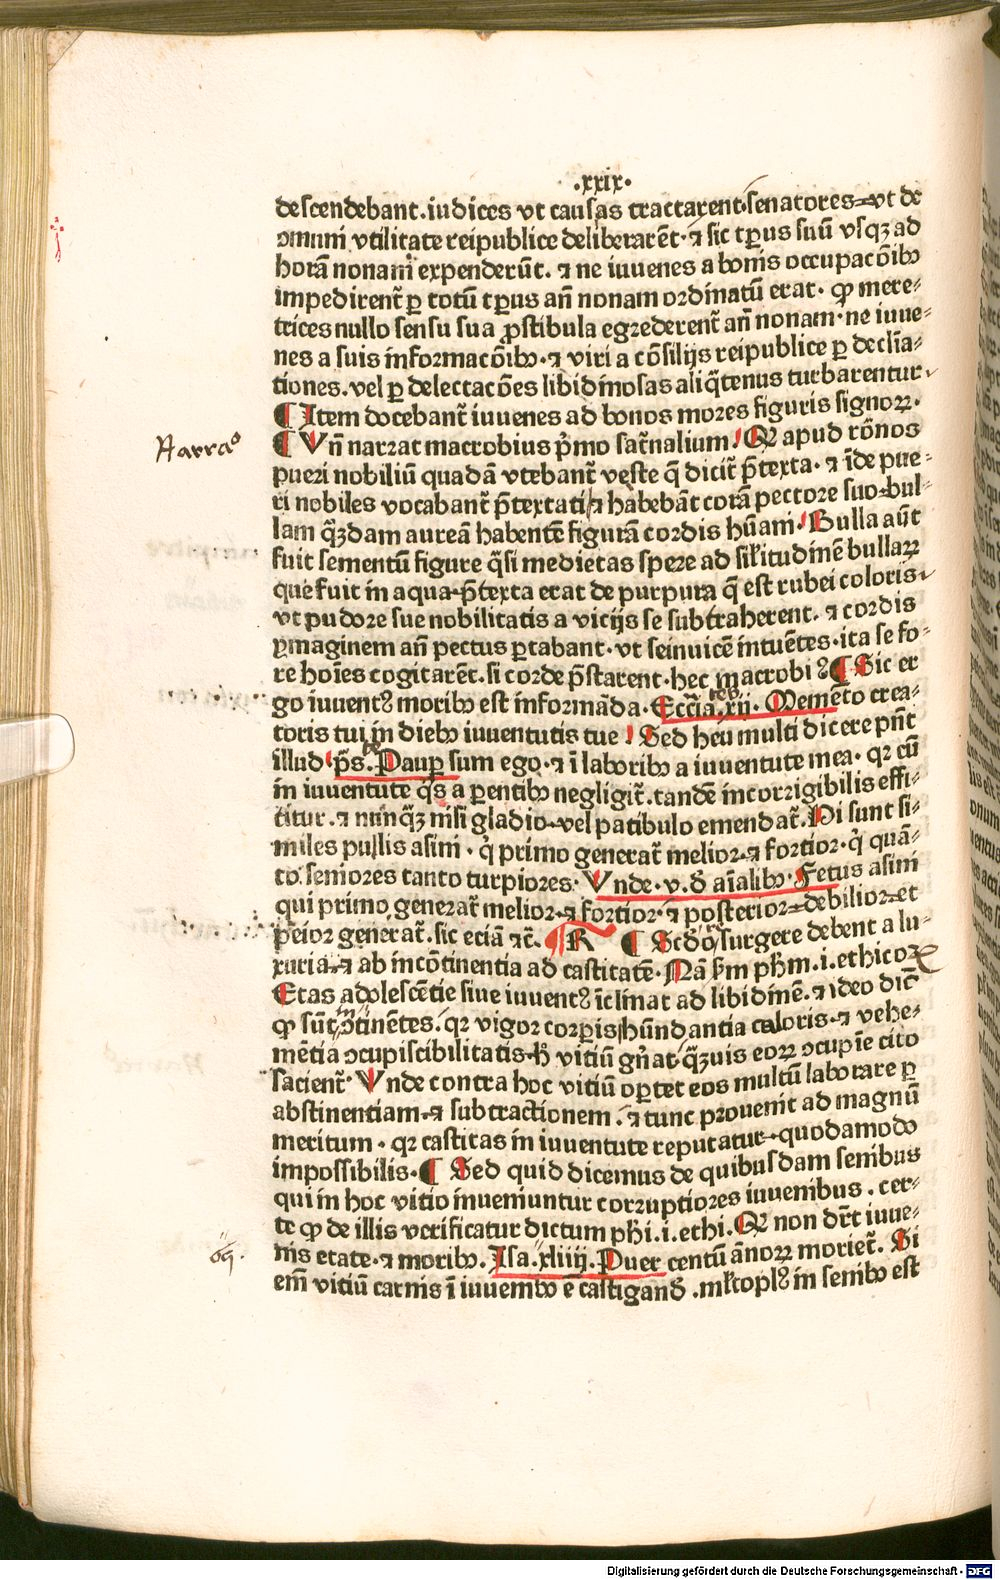 ·xxix·
descendebant. iudices vt causas tractarent. senatores vt de
ↄmuni vtilitate reipublice deliberarēt. ⁊ sic tp̄us suū vsqꝫ ad
horā nonam expenderūt. ⁊ ne iuuenes a bonis occupacōibꝰ
impedirent᷑ ꝑ totū tp̄us añ nonam ordinatū erat. ꝙ mere⸗
trices nullo sensu sua ꝓstibula egrederent᷑ añ nonam. ne iuue⸗
nes a suis informacōibꝰ. ⁊ viri a cōsilijs reipublice ꝑ declīa⸗
tiones. vel ꝑ delectacōes libidinosas aliq̄tenus turbarentur.
¶ Item docebant᷑ iuuenes ad bonos mores figuris signoꝝ.
Narra°
¶ Vñ narrat macrobius p̄mo sat᷑nalium. Qꝛ apud rōnos
pueri nobiliū quadā vtebant᷑ veste q̄ dicit᷑ p̄texta. ⁊ īde pue⸗
ri nobiles vocabant᷑ p̄textati ⁊ habebāt corā pectore suo bul⸗
lam q̄ꝫdam aureā habentē figurā cordis hūani. Bulla aūt
fuit sementū figure q̄si medietas spere ad silitudinē bullaꝝ
que fuit in aqua. p̄texta erat de purpura q̄ est rubei coloris.
vt pudore sue nobilitatis a vicijs se subtraherent. ⁊ cordis
ymaginem añ pectus ꝑtabant. vt seinuicē intuētes. ita se fo⸗
re hoīes cogitarēt. si corde p̄starent. hec macrobiꝰ ¶ Sic er
go iuuentꝰ moribꝰ est informāda. Eccīa. xij. Memēto crea⸗
toris tui in diebꝰ iuuentutis tue. Sed heu multi dicere pn̄t
illud p̄s. Paupꝑ sum ego. ⁊ ī laboribꝰ a iuuentute mea. qꝛ cū
in iuuentute q̄s a ꝑentibꝰ negligit᷑. tandē incorrigibilis effi⸗
titur. ⁊ nunq̄ꝫ nisi gladio vel patibulo emendat᷑. Hi sunt si⸗
miles pullis asini. q̇ primo generat᷑ melior ⁊ fortior. q̇ quā⸗
to seniores tanto turpiores. Vnde. v. đ aīalibꝰ. Fetus asini
qui primo generat᷑ melior ⁊ fortior. ⁊ posterior debilior et
peior generat᷑. sic eciā ⁊c̄. ¶ R ¶ Scđo surgere debent a lu⸗
xuria ⁊ ab incōtinentia ad castitatē. Nā ẜm ph̄m. i. ethicoꝝ
Etas adolescētie siue iuuentꝰ īclinat ad libidinē. ⁊ ideo dic̄
ꝙ sūt ↄtinētes. qꝛ vigor corꝑis hūndantia caloris. ⁊ vehe⸗
mētia ↄcupiscibilitatis ħ vitiū gn̄at. q̄ꝫuis eoꝝ ↄcupīe cito
sacient᷑. Vnde contra hoc vitiū oꝑtet eos multū laborare ꝑ
abstinentiam. ⁊ subtractionem. ⁊ tunc prouenit ad magnū
meritum. qꝛ castitas in iuuentute reputatur quodamodo
impossibilis. ¶ Sed quid dicemus de quibusdam senibus
qui in hoc vitio inueniuntur corruptiores iuuenibus. cer⸗
te ꝙ de illis verificatur dictum ph̄i. i. ethi. Qꝛ non dr̄t iuue⸗
nis etate. ⁊ moribꝰ. Isa. xliiij. Puer centū annoꝝ moriet᷑. Si
em̄ vitiū carnis ī iuuenibꝰ ē castigand̄. mltoplꝰ in senibꝰ est
Digitalisierung gefördert durch die Deutsche Forschungsgemeinschaft · DFG